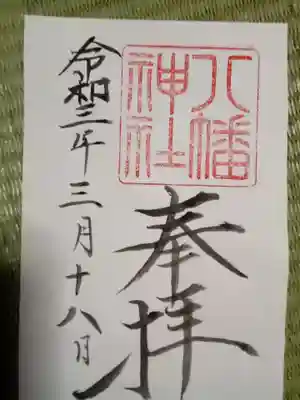 八幡
神社
奉拝
令和三年三月十八日